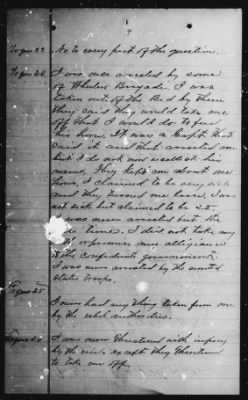 7
To ques 23 No to every part of the question.
To ques 24. I was once arrested by some
of Wheelers Brigade. I was
taken out of the Bed by them
They said they would take me
off that I would do to feed
his horse. It was a Capt. that
said it and that arrested me
but I do not now recollect his
name, They kept me about one
hour, I claimed to be very sick
and they turned me loose, I was
not sick but claimed to be so.
I was never arrested but the
one time. I did not take any
oath or promise any allegiance
to the confederate government
I was never arrested by the united
states troops.
To ques 25 I never had any thing taken from me
by the rebel authorities.
To ques 26 I was never threatened with injury
by the rebels except they threatened
to take me off.